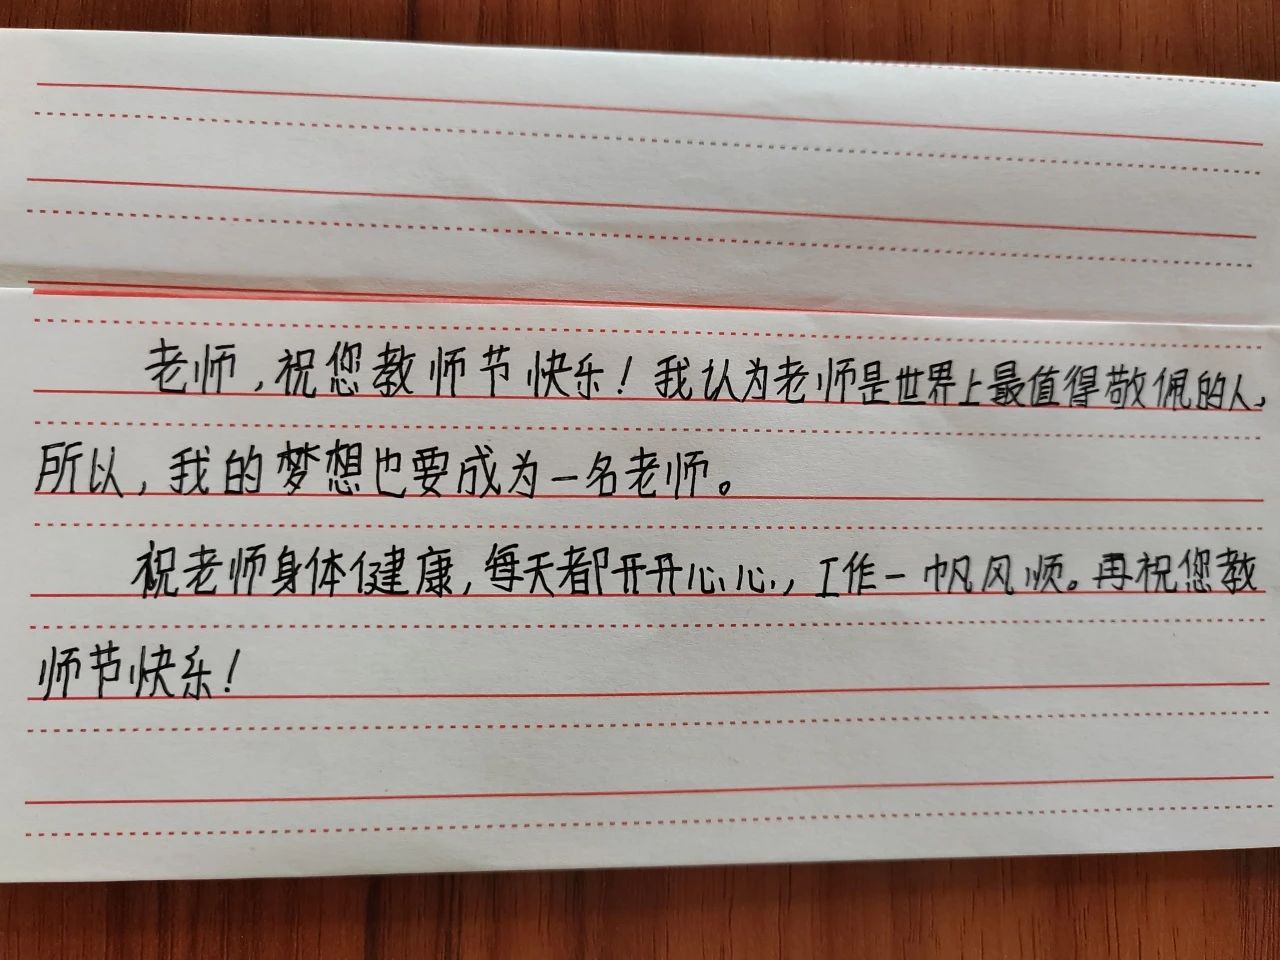 老师,祝您教师节快乐!我认为老师是世界上最值得敬佩的人,
所以,我的梦想也要成为一名老师。
祝老师身体健康,每天都开开心心,工作一帆风顺。再祝您教
师节快乐!